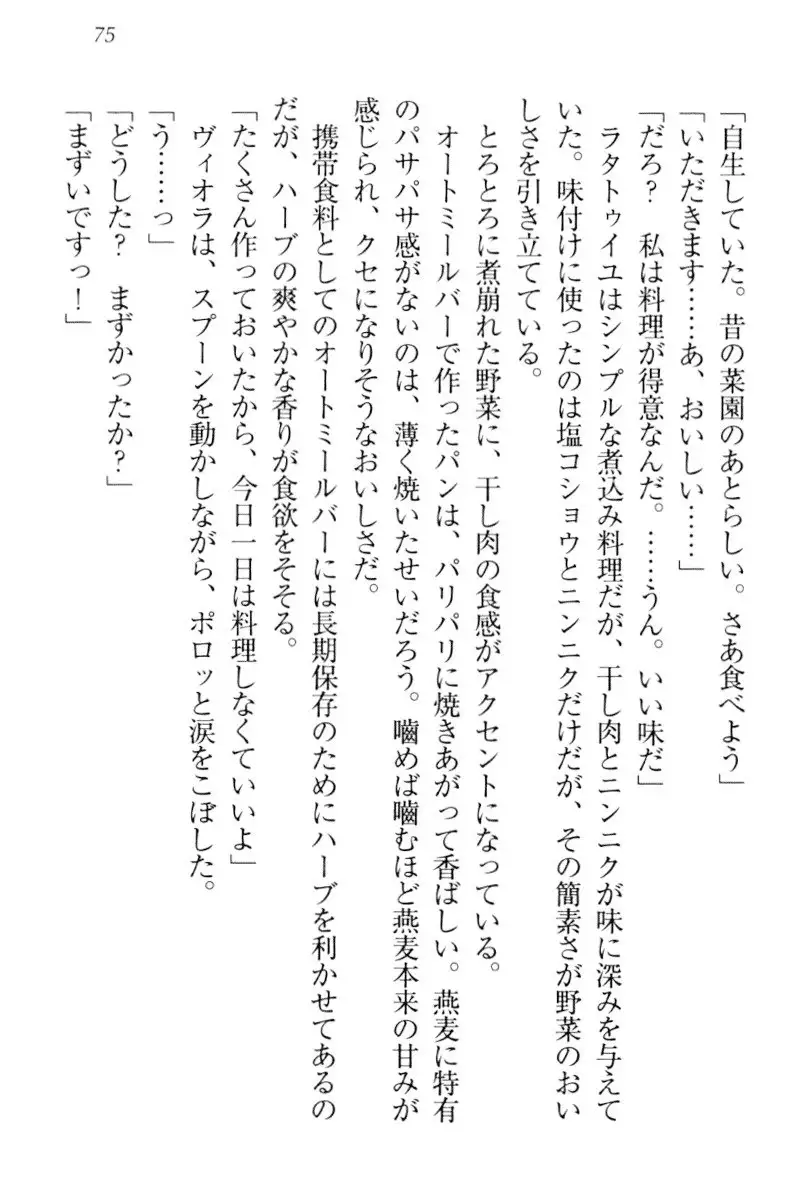 75
「自生していた。昔の菜園のあとらしい。さあ食べよう」
「いただきます……あ、おいしい……」
「だろ？　私は料理が得意なんだ。……うん。いい味だ」
　ラタトゥイユはシンプルな煮込み料理だが、干し肉とニンニクが味に深みを与えて
いた。味付けに使ったのは塩コショウとニンニクだけだが、その簡素さが野菜のおい
しさを引き立てている。
　とろとろに煮崩れた野菜に、干し肉の食感がアクセントになっている。
　オートミールバーで作ったパンは、パリパリに焼きあがって香ばしい。燕麦に特有
のパサパサ感がないのは、薄く焼いたせいだろう。噛めば噛むほど燕麦本来の甘みが
感じられ、クセになりそうなおいしさだ。
　携帯食料としてのオートミールバーには長期保存のためにハーブを利かせてあるの
だが、ハーブの爽やかな香りが食欲をそそる。
「たくさん作っておいたから、今日一日は料理しなくていいよ」
　ヴィオラは、スプーンを動かしながら、ポロッと涙をこぼした。
「う……っ」
「どうした？　まずかったか？」
「まずいですっ！」